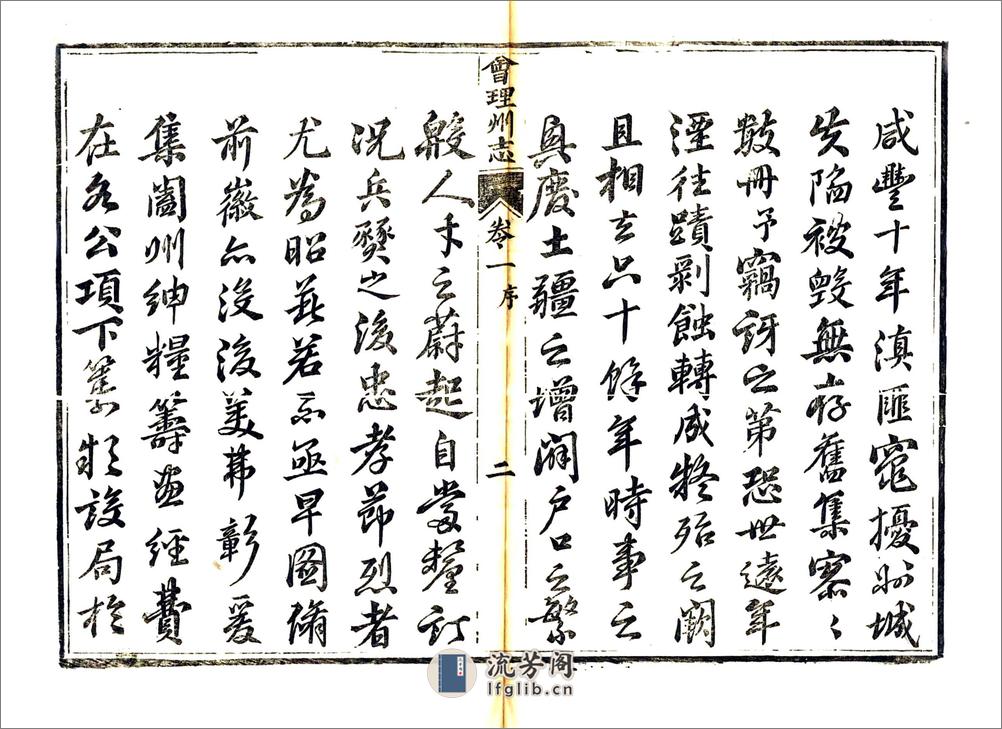 咸豐十年滇匪竄擾州城
失陷被毀無存舊集寥〻
數冊予竊訝之第恐世遠年
湮往蹟剝蝕轉成殘殆之闕
且相去只十餘年時事之
異慶土疆之增闊户口之繁
會理州志 卷一 序 二
般人才之蔚起自當釐訂
況兵燹之後忠孝節烈者
尤為昭茲若不亟早圖脩
前徽亦没後美弗彰爰
集闔州紳糧籌畫經費
在各公項下籌設局於
流芳阁
lfglib.cn